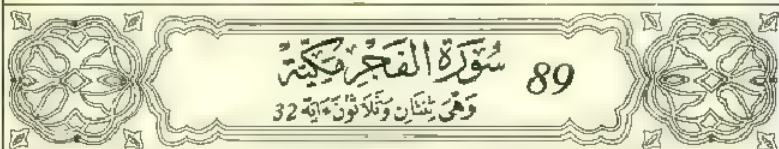 سُورَةُ الفَجْرِ مَكِّيَّةٌ 89
وَهْيَ ثِنْتَانِ وَثَلَاثُونَ ءَايَة 32